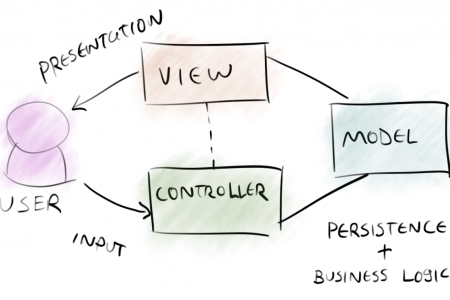 PRESENTATION
VIEW
MODEL
CONTROLLER
USER
INPUT
PERSISTENCE
+
BUSINESS LOGIC